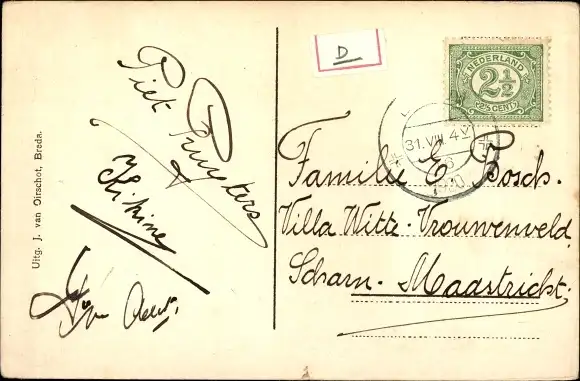 Uitg. J. van Oirschot, Breda.
Piet Ruyters
D
NEDERLAND
2½
2½ CENT
31.VIII 4V
Familie E Bosch.
Villa Witte-Vrouwenveld
Scharn-Maastricht.